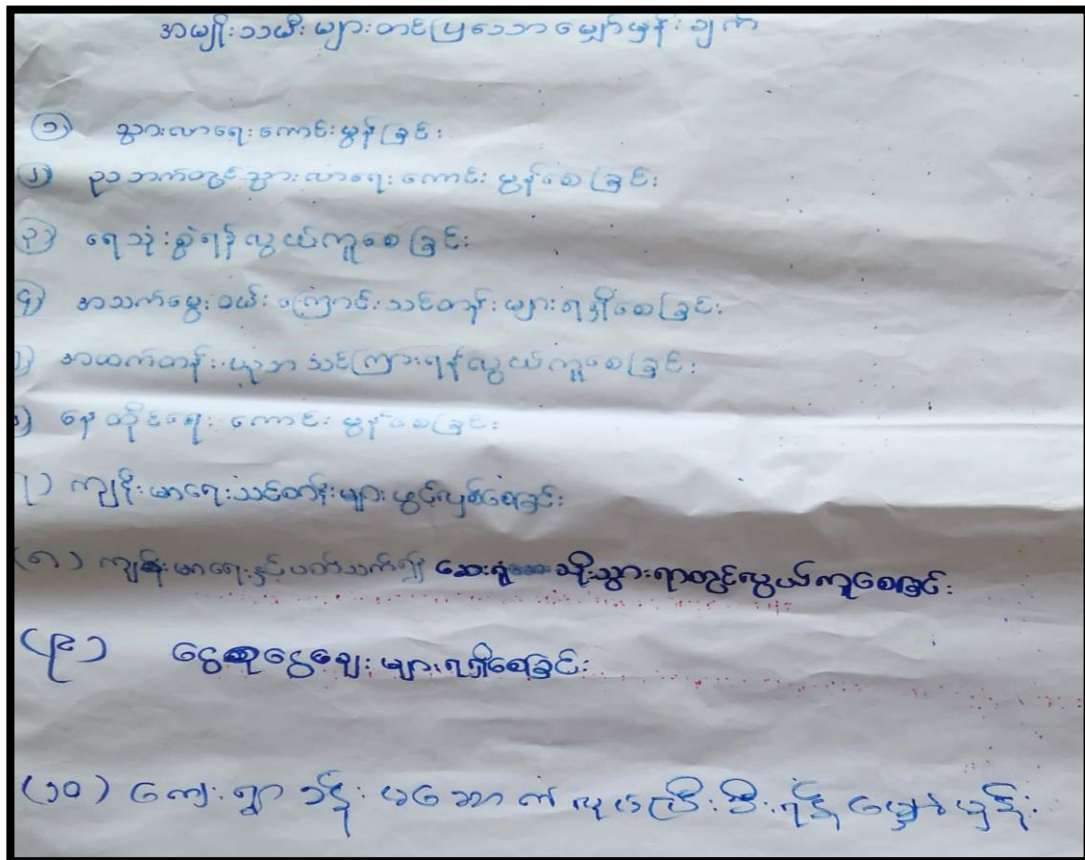 အမျိုးသမီးများတင်ပြသောမျှော်မှန်းချက်
၁) သွားလာရေးကောင်းမွန်ခြင်း
၂) ညဘက်တွင်သွားလာရေးကောင်းမွန်စေခြင်း
၃) ရေသုံးစွဲရန်လွယ်ကူစေခြင်း
၄) အသက်မွေးဝမ်းကြောင်းသင်တန်းများရရှိစေခြင်း
) အထက်တန်းပညာသင်ကြားရန်လွယ်ကူစေခြင်း
) နေထိုင်ရေးကောင်းမွန်စေခြင်း
) ကျန်းမာရေးသင်တန်းများဖွင့်လှစ်စေခြင်း
(၈) ကျန်းမာရေးနှင့်ပတ်သက်၍ ဆေးရုံဆေးခန်းသို့သွားရာတွင်လွယ်ကူစေခြင်း
(၉) ငွေစုငွေချေးများရရှိစေခြင်း
(၁၀) ကျေးရွာခန်းမဆောက်လုပ်ပြီးစီးရန်မျှော်မှန်း